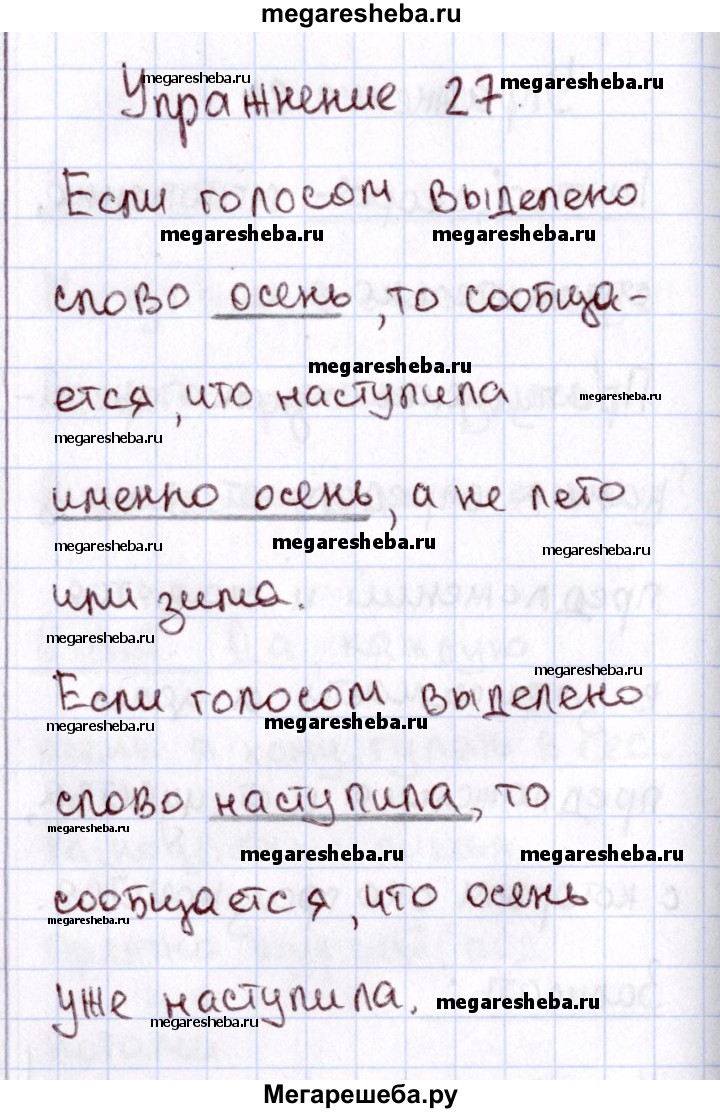 megaresheba.ru
Упражнение 27
megaresheba.ru megaresheba.ru
Если голосом выделено
megaresheba.ru megaresheba.ru
слово осень, то сообща-
megaresheba.ru
ется, что наступила
megaresheba.ru
megaresheba.ru
именно осень, а не лето
megaresheba.ru megaresheba.ru megaresheba.ru
или зима.
megaresheba.ru
megaresheba.ru
Если голосом выделено
megaresheba.ru megaresheba.ru
слово наступила, то
megaresheba.ru
megaresheba.ru megaresheba.ru
сообщается, что осень
megaresheba.ru
уже наступила.
megaresheba.ru megaresheba.ru
Мегарешеба.ру